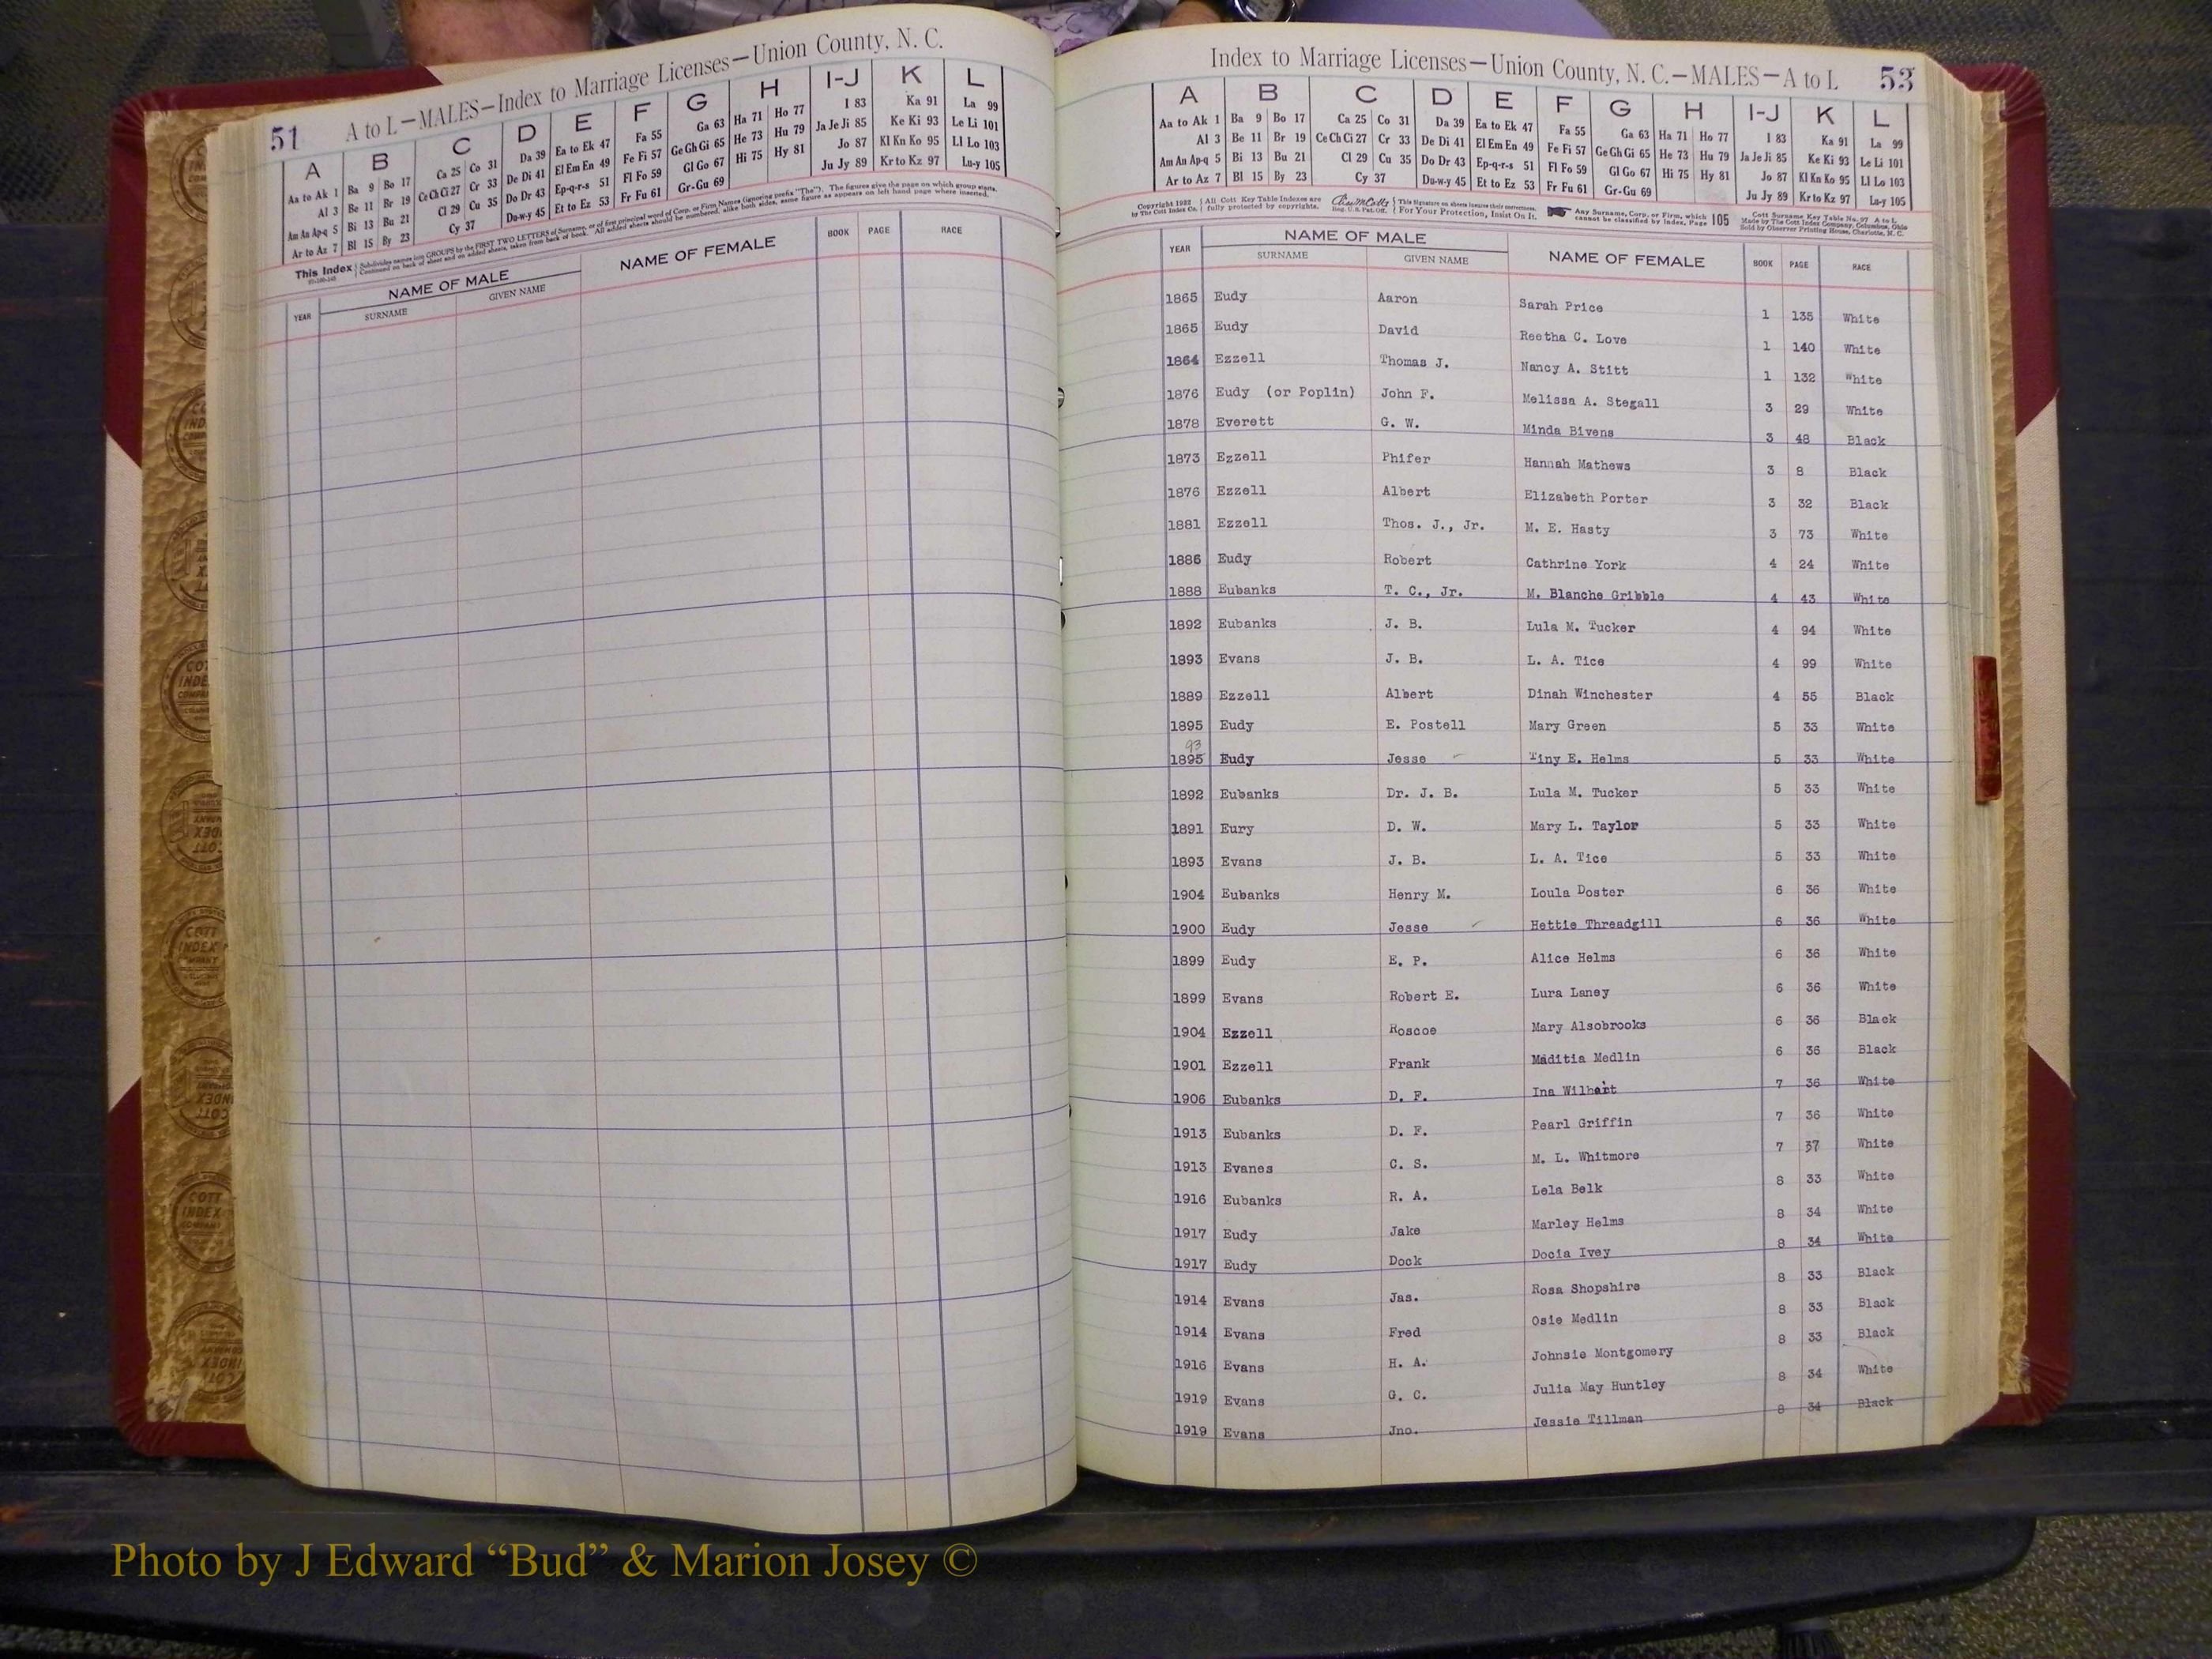 51 A to L—MALES—Index to Marriage Licenses—Union County, N. C.
A B C D E F G H I-J K L
Aa to Ak 1 Ba 9 Bo 17 Ca 25 Co 31 Da 39 Ea to Ek 47 Fa 55 Ga 63 Ha 71 Ho 77 I 83 Ka 91 La 99
Al 3 Be 11 Br 19 Ce Ch Ci 27 Cr 33 De Di 41 El Em En 49 Fe Fi 57 Ge Gh Gi 65 He 73 Hu 79 Ja Je Ji 85 Ke Ki 93 Le Li 101
Am An Ap-q 5 Bi 13 Bu 21 Cl 29 Cu 35 Do Dr 43 Ep-q-r-s 51 Fl Fo 59 Gl Go 67 Hi 75 Hy 81 Jo 87 Kl Kn Ko 95 Ll Lo 103
Ar to Az 7 Bl 15 By 23 Cy 37 Du-w-y 45 Et to Ez 53 Fr Fu 61 Gr-Gu 69 Ju Jy 89 Kr to Kz 97 Lu-y 105
This Index Subdivides names into GROUPS by the FIRST TWO LETTERS of Surname, or of first principal word of Corp. or Firm Names (ignoring prefix "The"). The figures give the page on which group starts.
Continued on back of sheet and on added sheets, taken from back of book. All added sheets should be numbered, alike both sides, same figure as appears on left hand page where inserted.
YEAR NAME OF MALE NAME OF FEMALE BOOK PAGE RACE
SURNAME GIVEN NAME
Index to Marriage Licenses—Union County, N. C.—MALES—A to L 53
A B C D E F G H I-J K L
Aa to Ak 1 Ba 9 Bo 17 Ca 25 Co 31 Da 39 Ea to Ek 47 Fa 55 Ga 63 Ha 71 Ho 77 I 83 Ka 91 La 99
Al 3 Be 11 Br 19 Ce Ch Ci 27 Cr 33 De Di 41 El Em En 49 Fe Fi 57 Ge Gh Gi 65 He 73 Hu 79 Ja Je Ji 85 Ke Ki 93 Le Li 101
Am An Ap-q 5 Bi 13 Bu 21 Cl 29 Cu 35 Do Dr 43 Ep-q-r-s 51 Fl Fo 59 Gl Go 67 Hi 75 Hy 81 Jo 87 Kl Kn Ko 95 Ll Lo 103
Ar to Az 7 Bl 15 By 23 Cy 37 Du-w-y 45 Et to Ez 53 Fr Fu 61 Gr-Gu 69 Ju Jy 89 Kr to Kz 97 Lu-y 105
Copyright 1932 All Cott Key Table Indexes are This Signature on sheets insures their correctness. Any Surname, Corp. or Firm, which Cott Surname Key Table No. 97 A to L
by The Cott Index Co. fully protected by copyrights. Reg. U. S. Pat. Off. For Your Protection, Insist On It. cannot be classified by Index, Page 105 Made by The Cott Index Company, Columbus, Ohio
Sold by Observer Printing House, Charlotte, N. C.
YEAR NAME OF MALE NAME OF FEMALE BOOK PAGE RACE
SURNAME GIVEN NAME
1865 Eudy Aaron Sarah Price 1 135 White
1865 Eudy David Reetha C. Love 1 140 White
1864 Ezzell Thomas J. Nancy A. Stitt 1 132 White
1876 Eudy (or Poplin) John F. Melissa A. Stegall 3 29 White
1878 Everett G. W. Minda Bivens 3 48 Black
1873 Ezzell Phifer Hannah Mathews 3 8 Black
1876 Ezzell Albert Elizabeth Porter 3 32 Black
1881 Ezzell Thos. J., Jr. M. E. Hasty 3 73 White
1886 Eudy Robert Cathrine York 4 24 White
1888 Eubanks T. C., Jr. M. Blanche Gribble 4 43 White
1892 Eubanks J. B. Lula M. Tucker 4 94 White
1893 Evans J. B. L. A. Tice 4 99 White
1889 Ezzell Albert Dinah Winchester 4 55 Black
1895 Eudy E. Postell Mary Green 5 33 White
93
1895 Eudy Jesse Tiny E. Helms 5 33 White
1892 Eubanks Dr. J. B. Lula M. Tucker 5 33 White
1891 Eury D. W. Mary L. Taylor 5 33 White
1893 Evans J. B. L. A. Tice 5 33 White
1904 Eubanks Henry M. Loula Doster 6 36 White
1900 Eudy Jesse Hettie Threadgill 6 36 White
1899 Eudy E. P. Alice Helms 6 36 White
1899 Evans Robert E. Lura Laney 6 36 White
1904 Ezzell Roscoe Mary Alsobrooks 6 36 Black
1901 Ezzell Frank Maditia Medlin 6 36 Black
1906 Eubanks D. F. Ina 7 36 White
1913 Eubanks D. F. Pearl Griffin 7 36 White
1913 Evanes C. S. M. L. Whitmore 7 37 White
1916 Eubanks R. A. Lela Belk 8 33 White
1917 Eudy Jake Marley Helms 8 34 White
1917 Eudy Dock Docia Ivey 8 34 White
1914 Evans Jas. Rosa Shopshire 8 33 Black
1914 Evans Fred Osie Medlin 8 33 Black
1916 Evans H. A. Johnsie Montgomery 8 33 Black
1919 Evans G. C. Julia May Huntley 8 34 White
1919 Evans Jno. Jessie Tillman 8 34 Black
Photo by J Edward “Bud” & Marion Josey ©